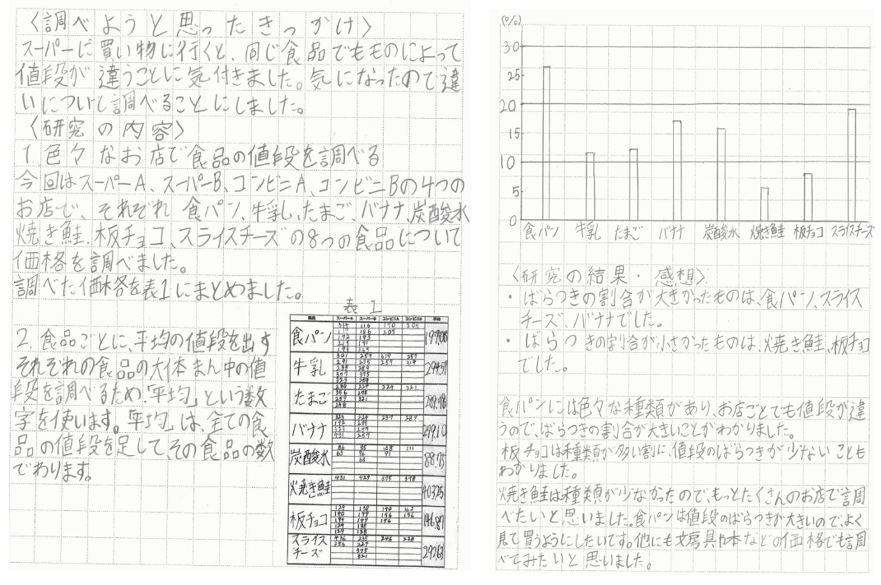 〈調べようと思ったきっかけ〉
スーパーに買い物に行くと、同じ食品でもものによって
値段が違うことに気付きました。気になったので違
いについて調べることにしました。
〈研究の内容〉
1 色々なお店で食品の値段を調べる
今回はスーパーA、スーパーB、コンビニA、コンビニBの4つの
お店で、それぞれ 食パン、牛乳、たまご、バナナ、炭酸水
焼き鮭、板チョコ、スライスチーズの8つの食品について
価格を調べました。
調べた価格を表1にまとめました。
表1
食パン
牛乳
たまご
バナナ
炭酸水
焼き鮭
板チョコ
スライス
チーズ
2. 食品ごとに、平均の値段を出す
それぞれの食品の大体まん中の値
段を調べるため、「平均」という数
字を使います。「平均」は、全ての食
品の値段を足して、その食品の数
でわります。
(%)
30
25
20
15
10
5
0
食パン 牛乳 たまご バナナ 炭酸水 焼き鮭 板チョコ スライスチーズ
〈研究の結果・感想〉
・ばらつきの割合が大きかったものは、食パン、スライス
チーズ、バナナでした。
・ばらつきの割合が小さかったものは、焼き鮭、板チョコ
でした。
食パンには色々な種類があり、お店ごとでも値段が違
うので、ばらつきの割合が大きいことがわかりました。
板チョコは種類が多い割に、値段のばらつきが少ないことも
わかりました。
焼き鮭は種類が少なかったので、もっとたくさんのお店で調
べたいと思いました。食パンは値段のばらつきが大きいので、よく
見て買うようにしたいです。他にも文房具や本などの価格でも調
べてみたいと思いました。